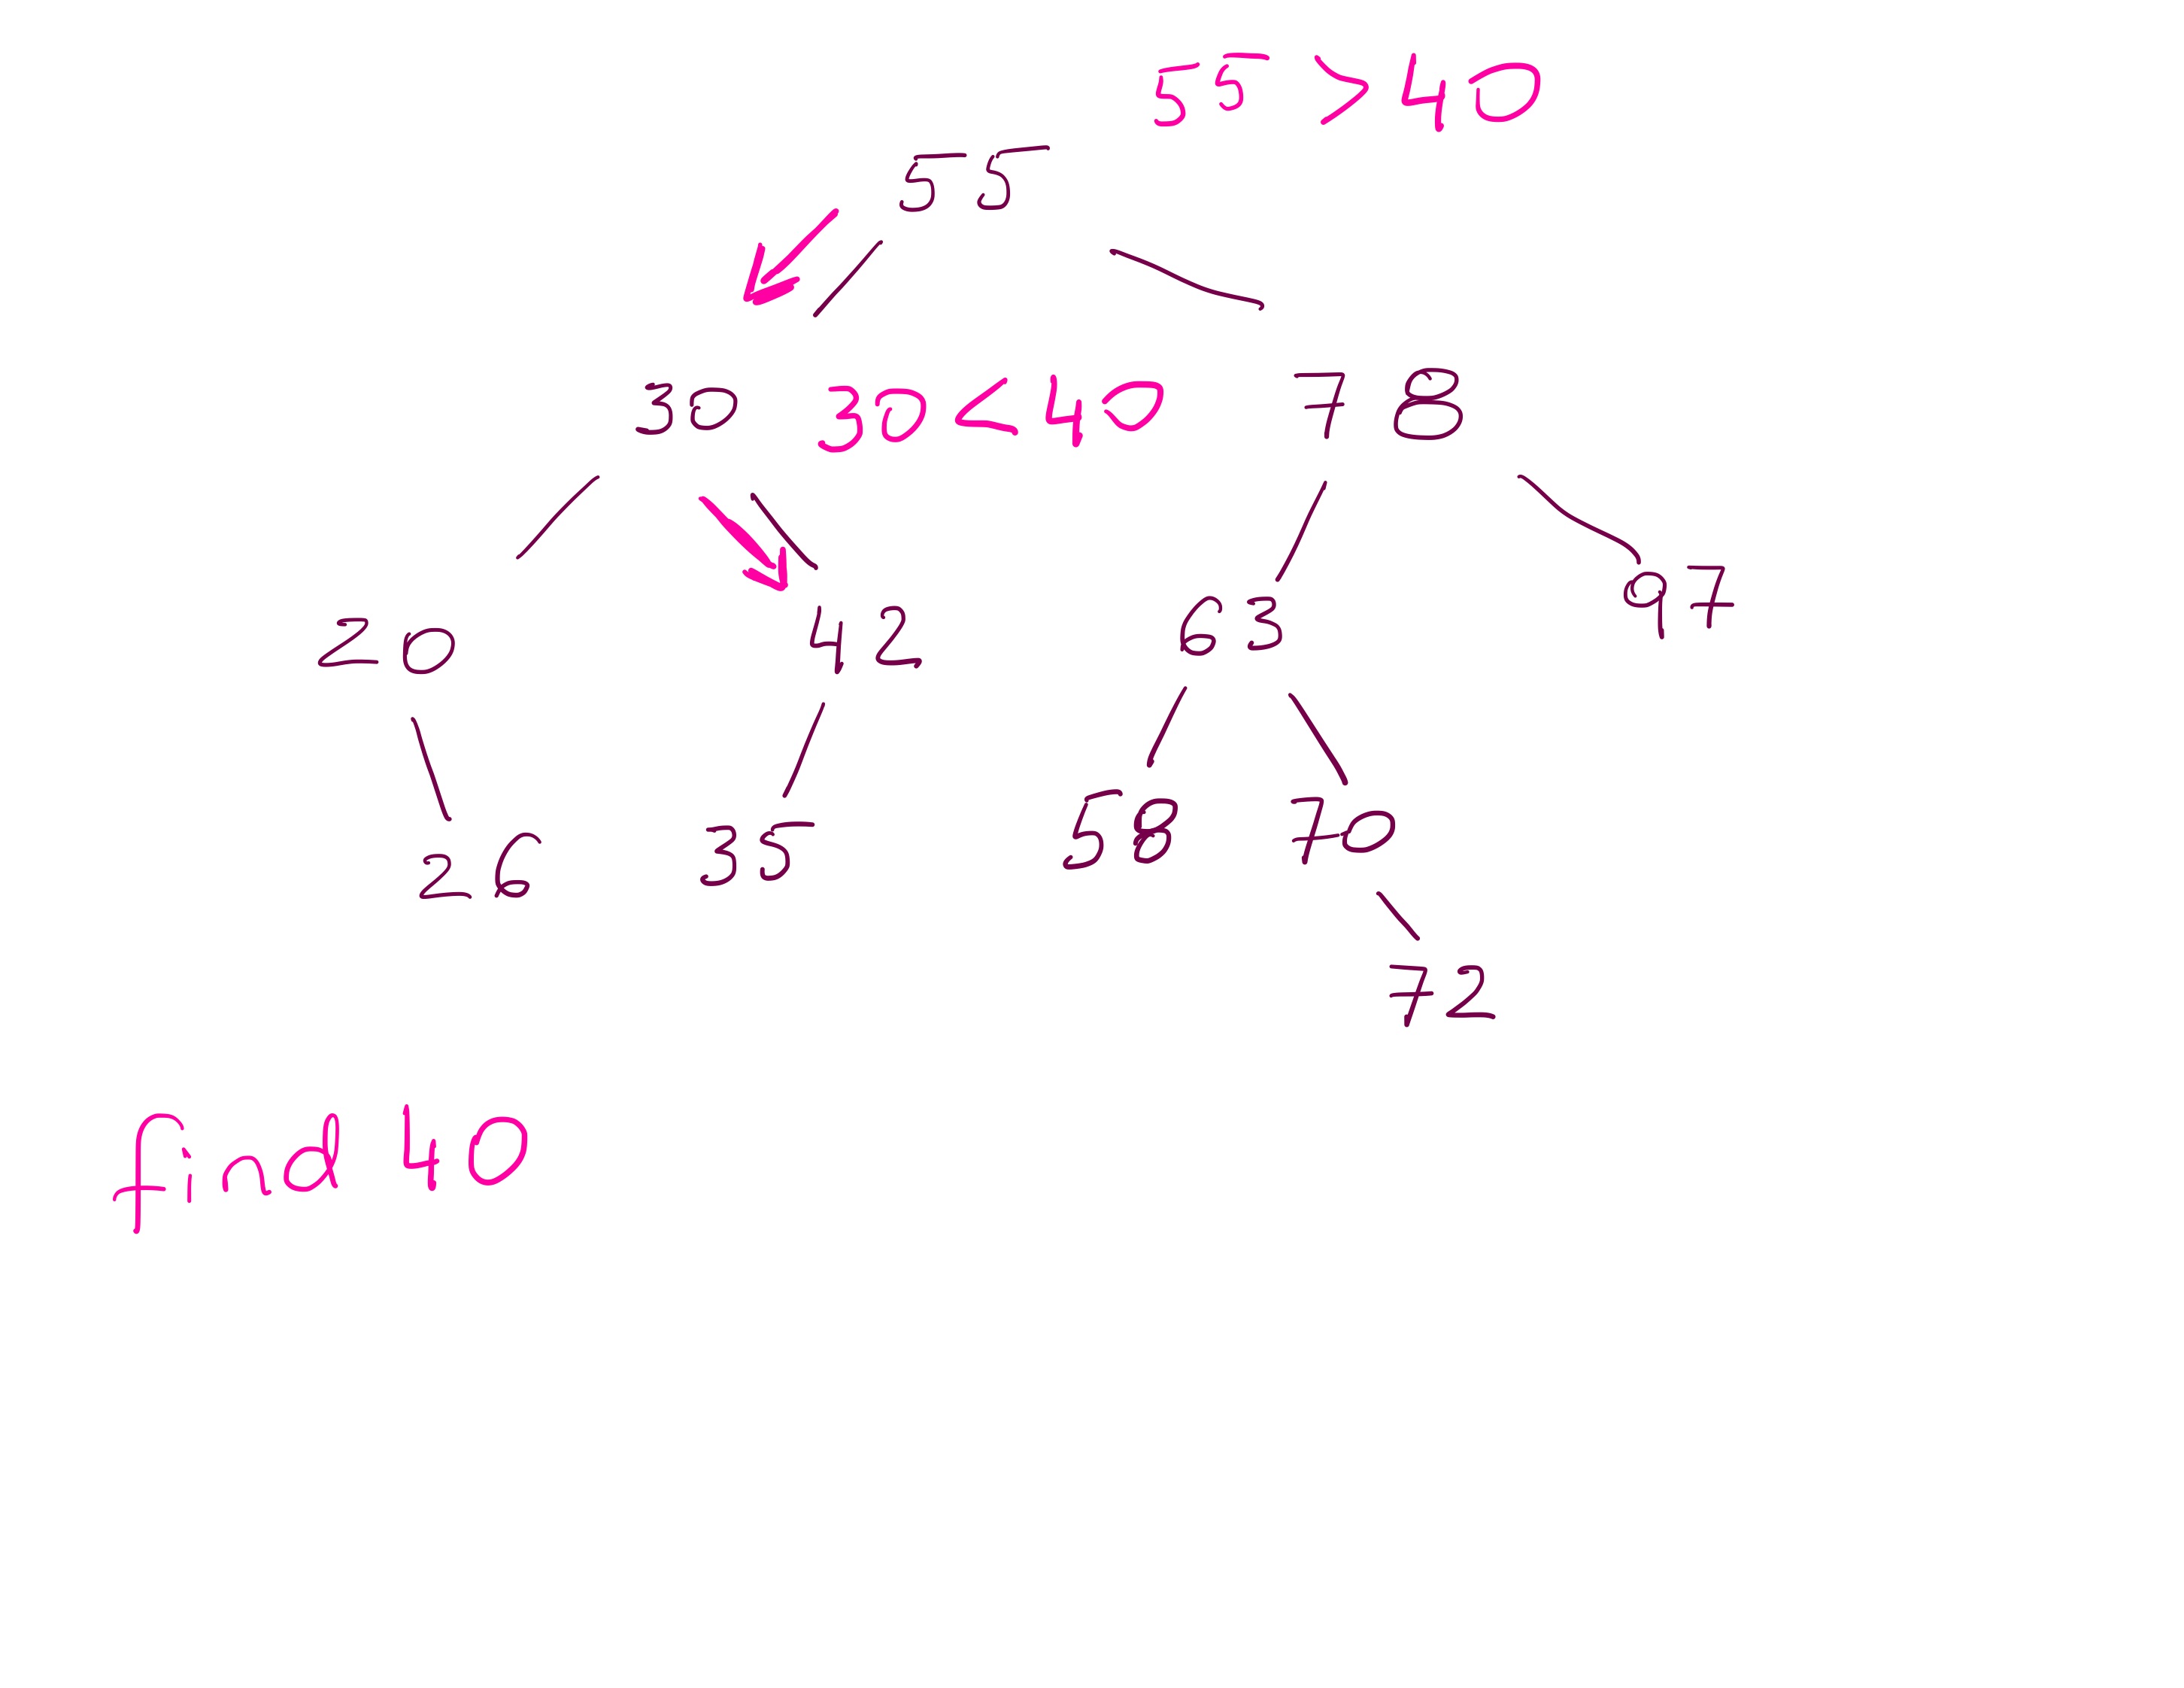 55 > 40
55
30 30 < 40 78
20 42 63 97
26 35 58 70
72
find 40